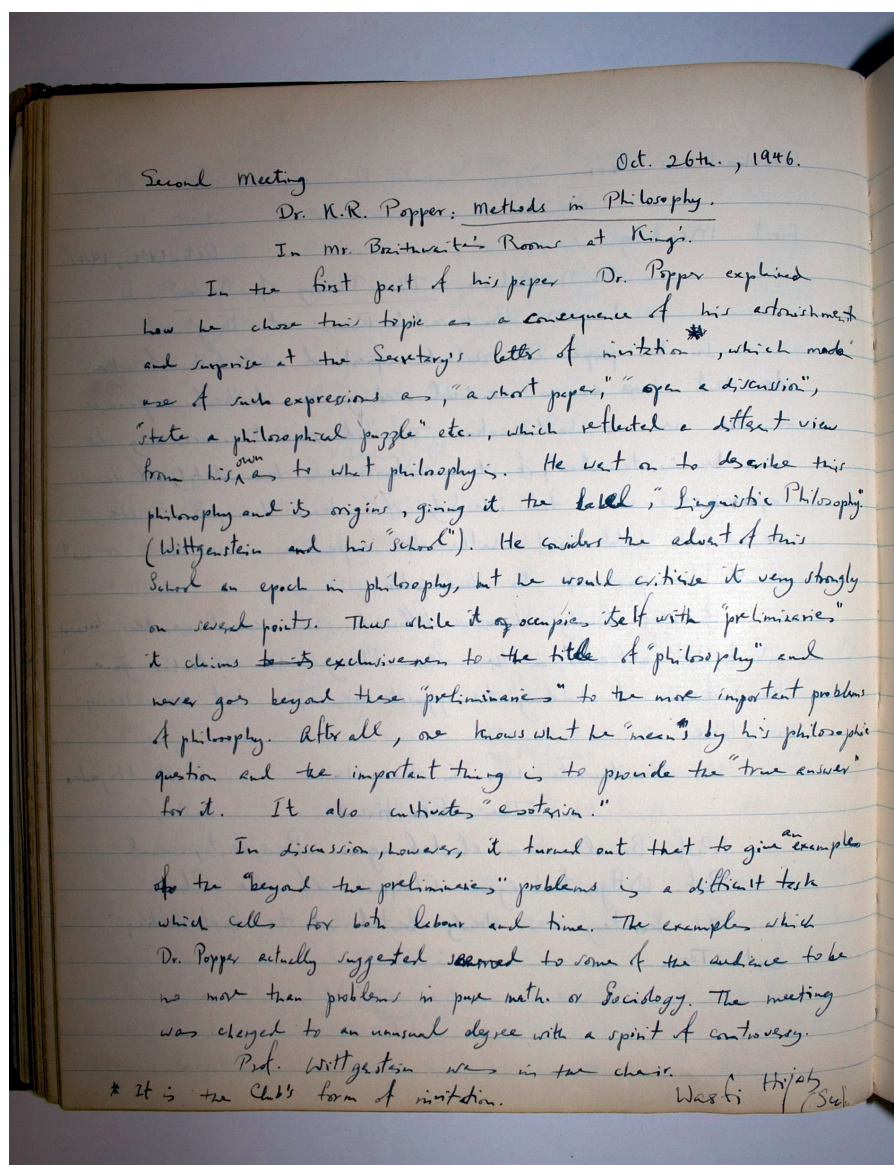 Oct. 26th., 1946.
Second Meeting
Dr. K.R. Popper: Methods in Philosophy.
In Mr. Braithwaite's Rooms at King's.
In the first part of his paper Dr. Popper explained
how he chose this topic as a consequence of his astonishment
and surprise at the Secretary's letter of invitation*, which made
use of such expressions as, "a short paper," "open a discussion",
"state a philosophical puzzle" etc., which reflected a different view
from his own as to what philosophy is. He went on to describe this
philosophy and its origins, giving it the label, "Linguistic Philosophy".
(Wittgenstein and his "school"). He considers the advent of this
School an epoch in philosophy, but he would criticise it very strongly
on several points. Thus while it occupies itself with "preliminaries"
it claims exclusiveness to the title of "philosophy" and
never goes beyond these "preliminaries" to the more important problems
of philosophy. After all, one knows what he "means" by his philosophic
question and the important thing is to provide the "true answer"
for it. It also cultivates "esoterism."
In discussion, however, it turned out that to give an examples
of the "beyond the preliminaries" problems is a difficult task
which calls for both labour and time. The examples which
Dr. Popper actually suggested seemed to some of the audience to be
no more than problems in pure math. or Sociology. The meeting
was charged to an unusual degree with a spirit of controversy.
Prof. Wittgenstein was in the chair.
* It is the Club's form of invitation.
Wasfi Hijab